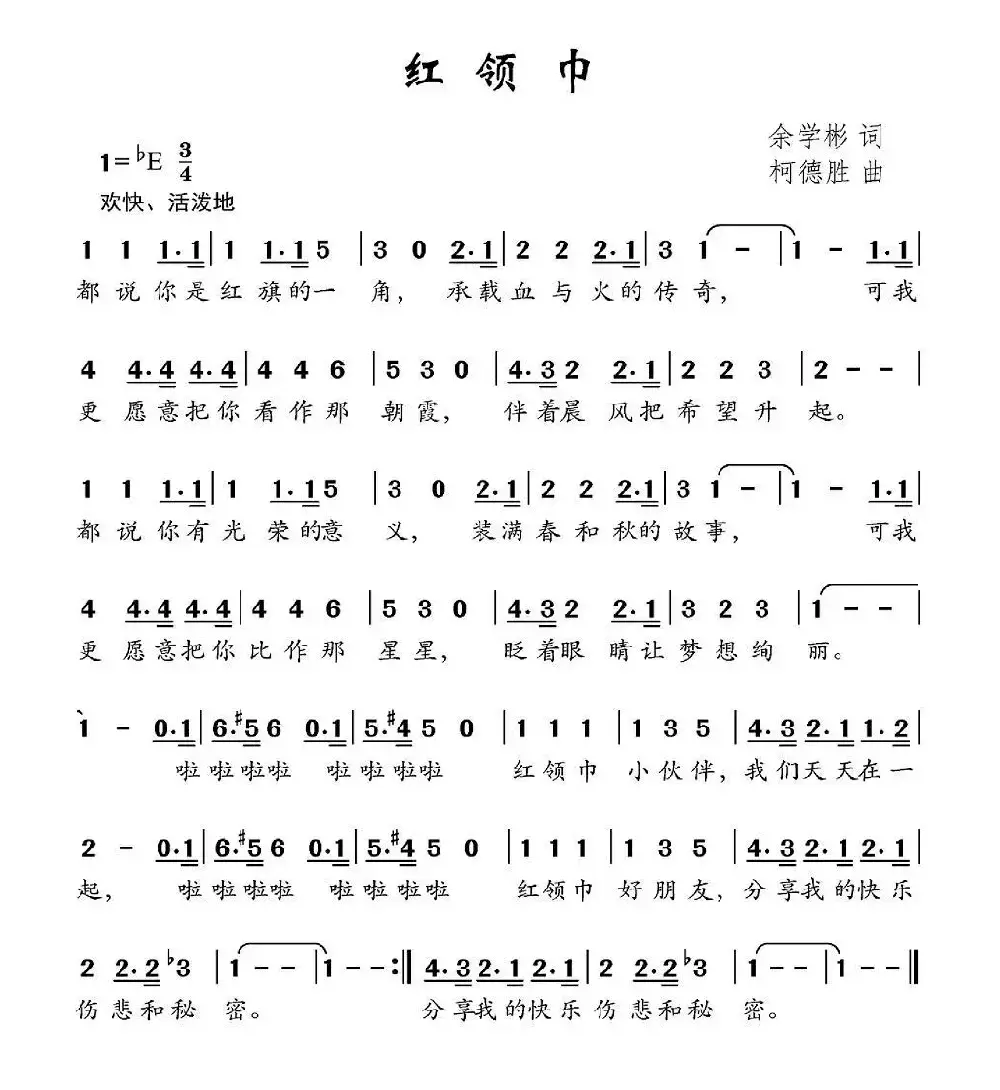 红领巾
余学彬 词
1=♭E 3/4
柯德胜 曲
欢快、活泼地
1 1 1.1 | 1 1.1 5 | 3 0 2.1 | 2 2 2.1 | 3 1 - | 1 - 1.1 |
都说你是红旗的一角，承载血与火的传奇，可我
4 4.4 4.4 | 4 4 6 | 5 3 0 | 4.3 2 2.1 | 2 2 3 | 2 - - |
更愿意把你看作那朝霞，伴着晨风把希望升起。
1 1 1.1 | 1 1.1 5 | 3 0 2.1 | 2 2 2.1 | 3 1 - | 1 - 1.1 |
都说你有光荣的意义，装满春和秋的故事，可我
4 4.4 4.4 | 4 4 6 | 5 3 0 | 4.3 2 2.1 | 3 2 3 | 1 - - |
更愿意把你比作那星星，眨着眼睛让梦想绚丽。
1 - 0.1 | 6.#5 6 0.1 | 5.#4 5 0 | 1 1 1 | 1 3 5 | 4.3 2.1 1.2 |
啦啦啦啦 啦啦啦啦 红领巾小伙伴，我们天天在一
2 - 0.1 | 6.#5 6 0.1 | 5.#4 5 0 | 1 1 1 | 1 3 5 | 4.3 2.1 2.1 |
起，啦啦啦啦 啦啦啦啦 红领巾好朋友，分享我的快乐
2 2.2 ♭3 | 1 - - | 1 - - :| 4.3 2.1 2.1 | 2 2.2 ♭3 | 1 - - | 1 - - ||
伤悲和秘密。分享我的快乐伤悲和秘密。